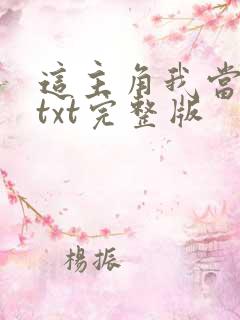 這主角我當
txt完整版
楊振